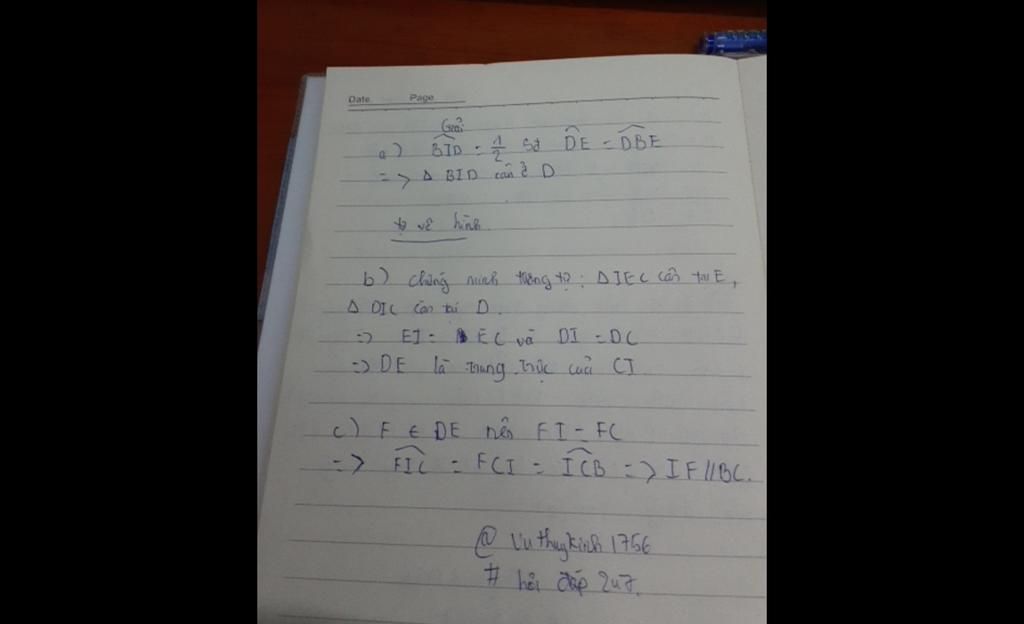 Date. Page
Giải
a) BID = 1/2 sđ DE = DBE
=> Δ BID cân ở D
tự vẽ hình.
b) chứng minh tương tự: Δ IEC cân tại E,
Δ DIC cân tại D.
=> EI = EC và DI = DC
=> DE là trung trực của CI
c) F ∈ DE nên FI = FC
=> FIC = FCI = ICB => IF // BC.
@ Vuthuykinh1756
# hỏi đáp 247.